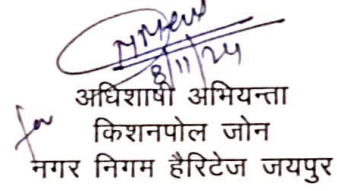 8/11/24
अधिशाषी अभियन्ता
for किशनपोल जोन
नगर निगम हैरिटेज जयपुर